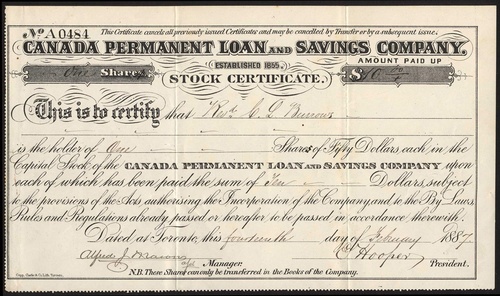 No. A0484 This Certificate cancels all previously issued Certificates and may be cancelled by Transfer or by a subsequent issue.
CANADA PERMANENT LOAN AND SAVINGS COMPANY.
ESTABLISHED 1855.
AMOUNT PAID UP
One Shares
STOCK CERTIFICATE.
$10
This is to certify that
is the holder of One Shares of Fifty Dollars each in the
Capital Stock of the CANADA PERMANENT LOAN AND SAVINGS COMPANY upon
each of which has been paid the sum of Ten Dollars, subject
to the provisions of the Acts authorising the Incorporation of the Company, and to the By Laws,
Rules and Regulations already passed or hereafter to be passed in accordance therewith.
Dated at Toronto, this fourteenth day of February 1887.
Alfred J. Hooper
Manager. President.
N.B. These Shares can only be transferred in the Books of the Company.